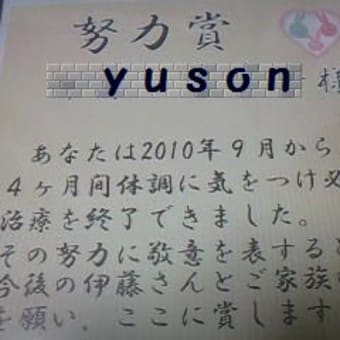 努力賞
yuson 様
あなたは2010年9月から
4ヶ月間体調に気をつけ必
治療を終了できました。
その努力に敬意を表すると
今後の伊藤さんとご家族の
を願い、ここに賞します